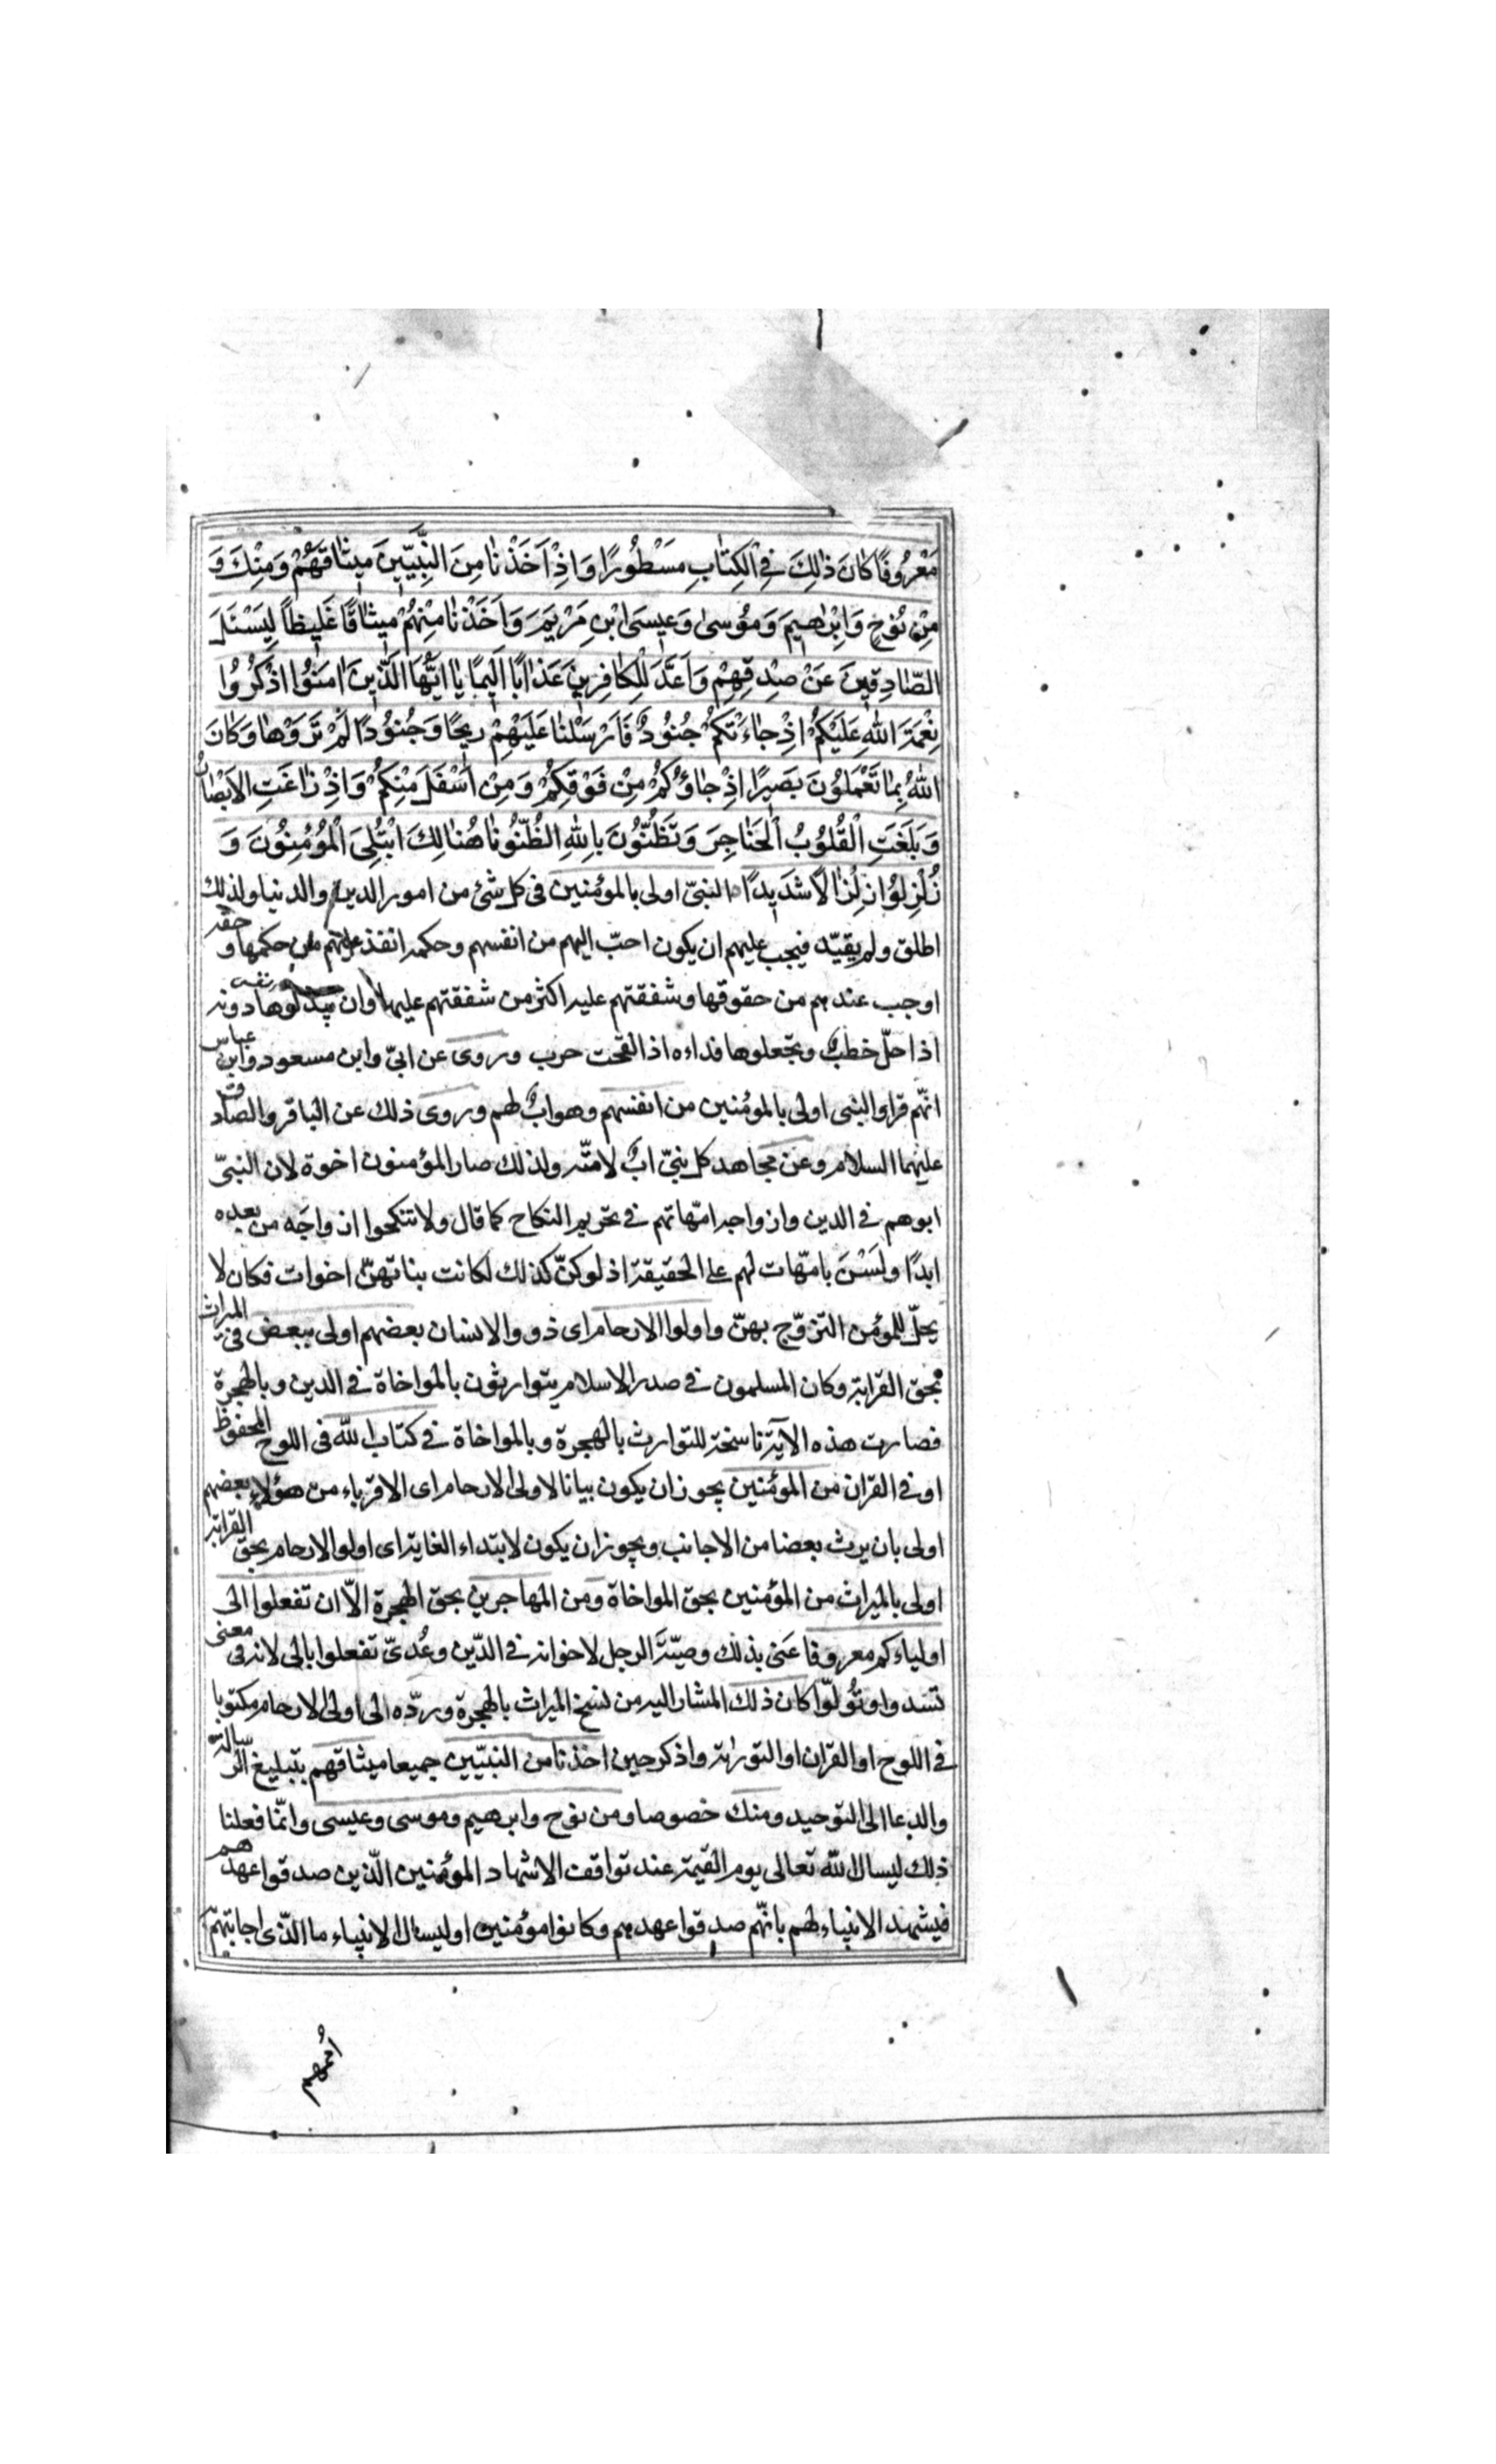 مَعْرُوفًا كٰانَ ذٰلِكَ فِي الْكِتٰابِ مَسْطُورًا وَاِذْ اَخَذْنٰا مِنَ النَّبِيّينَ ميثٰاقَهُمْ وَمِنْكَ وَ
مِنْ نُوحٍ وَاِبْرٰاهيمَ وَمُوسىٰ وَعيسَى ابْنِ مَرْيَمَ وَاَخَذْنٰا مِنْهُمْ ميثٰاقًا غَليظًا لِيَسْئَلَ
الصّٰادِقينَ عَنْ صِدْقِهِمْ وَاَعَدَّ لِلْكٰافِرينَ عَذٰابًا اَليمًا يٰا اَيُّهَا الَّذينَ اٰمَنُوا اذْكُرُوا
نِعْمَةَ اللّٰهِ عَلَيْكُمْ اِذْ جٰاءَتْكُمْ جُنُودٌ فَاَرْسَلْنٰا عَلَيْهِمْ ريحًا وَجُنُودًا لَمْ تَرَوْهٰا وَكٰانَ
اللّٰهُ بِمٰا تَعْمَلُونَ بَصيرًا اِذْ جٰاؤُكُمْ مِنْ فَوْقِكُمْ وَمِنْ اَسْفَلَ مِنْكُمْ وَاِذْ زٰاغَتِ الْاَبْصٰارُ
وَبَلَغَتِ الْقُلُوبُ الْحَنٰاجِرَ وَتَظُنُّونَ بِاللّٰهِ الظُّنُونٰا هُنٰالِكَ ابْتُلِيَ الْمُؤْمِنُونَ وَ
زُلْزِلُوا زِلْزٰالًا شَديدًا النبىّ اولى بالمؤمنين فى كل شئ من امور الدين والدنيا ولذلك
اطلق ولم يقيّد فيجب عليهم ان يكون احبّ اليهم من انفسهم وحكمه انفذ عليهم من حكمها و حقه
اوجب عندهم من حقوقها وشفقتهم عليه اكثر من شفقتهم عليها وان يبذلوها دونه
اذا حلّ خطبٌ ويجعلوها فداءه اذا لقحت حرب وروى عن ابىّ وابن مسعود وابن عباس
انّهم قراوا النبى اولى بالمؤمنين من انفسهم وهو ابٌ لهم وروى ذلك عن الباقر والصادق
عليهما السلام وعن مجاهد كل نبىّ ابٌ لامّته ولذلك صار المؤمنون اخوة لان النبىّ
ابوهم فى الدين وازواجه امّهاتهم فى تحريم النكاح كما قال ولا تنكحوا ازواجَه من بعده
ابدًا ولَسْنَ بامّهات لهم على الحقيقة اذ لو كنّ كذلك لكانت بناتهنّ اخوات فكان لا
يحلّ للمؤمن التزوّج بهنّ واولوا الارحام اى ذووا الانساب بعضهم اولى ببعض فى الميراث
بحق القرابة وكان المسلمون فى صدر الاسلام يتوارثون بالمواخاة فى الدين وبالهجرة
فصارت هذه الآية ناسخة للتوارث بالهجرة وبالمواخاة فى كتاب الله فى اللوح المحفوظ
او فى القران من المؤمنين يجوز ان يكون بيانا لاولى الارحام اى الاقرباء من هؤلاء بعضهم
اولى بان يرث بعضا من الاجانب ويجوز ان يكون لابتداء الغاية اى اولوا الارحام بحق القرابة
اولى بالميراث من المؤمنين بحق المواخاة ومن المهاجرين بحق الهجرة الاّ ان تفعلوا الى
اولياءكم معروفا عَنى بذلك وصيّةَ الرجل لاخوانه فى الدّين وعُدّىَ تفعلوا بالى لانه فى معنى
تسدوا وتُولُوا كان ذلك المشار اليه من نسخ الميراث بالهجرة وردّه الى اولى الارحام مكتوبا
فى اللوح او القران او التوراة واذكر حين اخذنا من النبيّين جميعا ميثاقهم بتبليغ الرسالة
والدعا الى التوحيد ومنك خصوصا ومن نوح وابرهيم وموسى وعيسى وانّما فعلنا
ذلك ليسال الله تعالى يوم القيمة عند تواقف الاشهاد المؤمنين الّذين صدقوا عهدهم
فيشهد الانبياء لهم بانّهم صدقوا عهدهم وكانوا مؤمنين او ليسال الانبياء ما الّذى اجابتهم
اُممهم